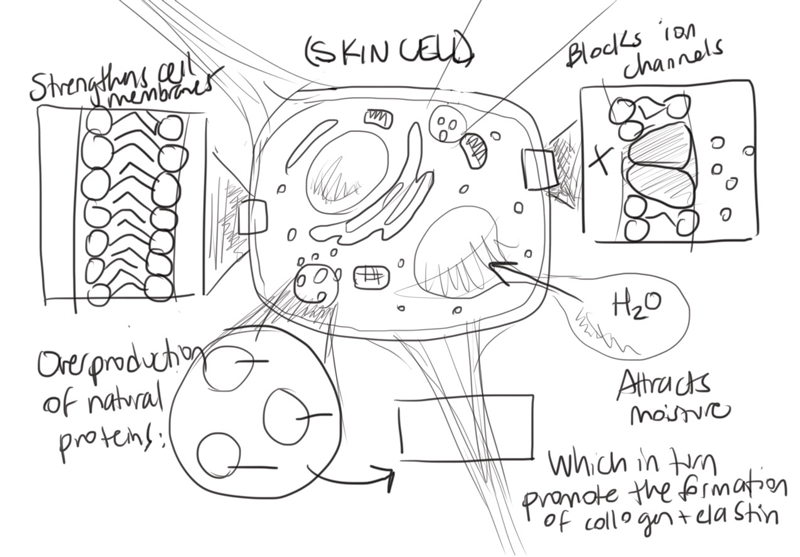 (SKIN CELL)
Strengthens cell
membranes
Blocks ion
channels
X
H₂O
Attracts
moisture
Overproduction
of natural
proteins:
Which in turn
promote the formation
of collagen + elastin